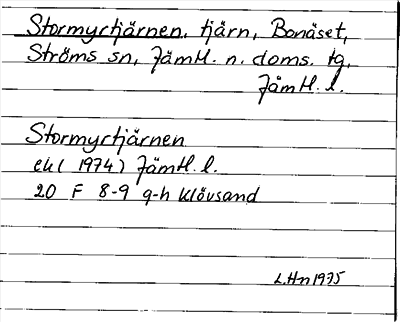 Stormyrtjärnen, tjärn, Bonäset,
Ströms sn, Jämtl. n. doms. tg,
Jämtl. l.
Stormyrtjärnen
ek (1974) Jämtl. l.
20 F 8-9 g-h Klövsand
L.Hn 1975